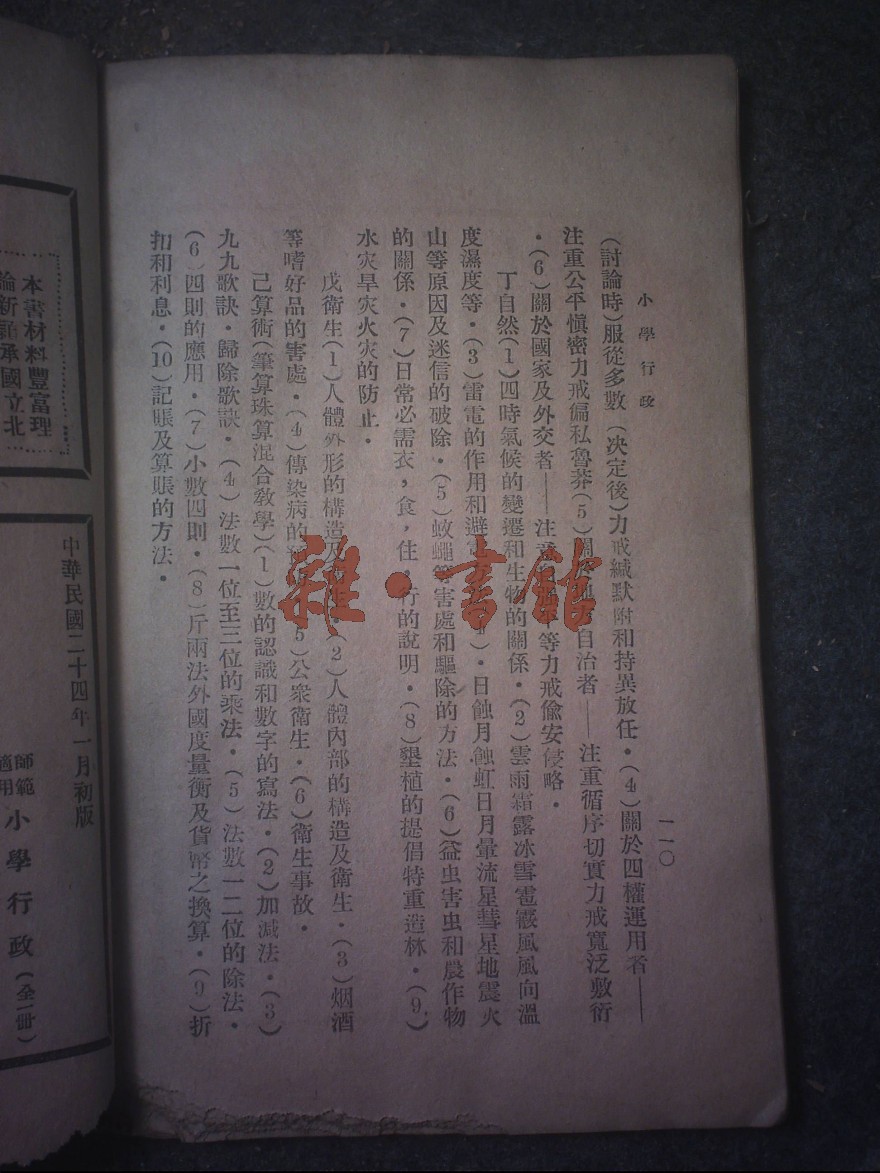 小學行政
一一〇
(討論時)服從多數(决定後)力戒緘默附和持異放任·(4)關於四權運用者——
注重公平愼密力戒偏私魯莽(5)關於地方自治者——注重循序切實力戒寬泛敷衍
·(6)關於國家及外交者——注意 等力戒偸安侵略·
丁自然(1)四時氣候的變遷和生物的關係·(2)雲雨霜露冰雪雹霰風風向溫
度濕度等·(3)雷電的作用和避 ·日蝕月蝕虹日月暈流星彗星地震火
山等原因及迷信的破除·(5)蚊蠅等害處和驅除的方法·(6)益虫害虫和農作物
的關係·(7)日常必需衣,食,住,行的說明·(8)墾植的提倡特重造林·(9)
水灾旱灾火灾的防止·
戊衛生(1)人體外形的構造及 ·(2)人體內部的構造及衛生·(3)烟酒
等嗜好品的害處·(4)傳染病的 (5)公衆衛生·(6)衛生事故·
己算術(筆算珠算混合敎學)(1)數的認識和數字的寫法·(2)加减法·(3)
九九歌訣·歸除歌訣·(4)法數一位至三位的乘法·(5)法數一二位的除法·
(6)四則的應用·(7)小數四則·(8)斤兩法外國度量衡及貨幣之換算·(9)折
扣和利息·(10)記賬及算賬的方法·
雜·書館
本書材料豐富理
論新穎承國立北
中華民國二十四年一月初版
師範適用 小學行政(全一冊)